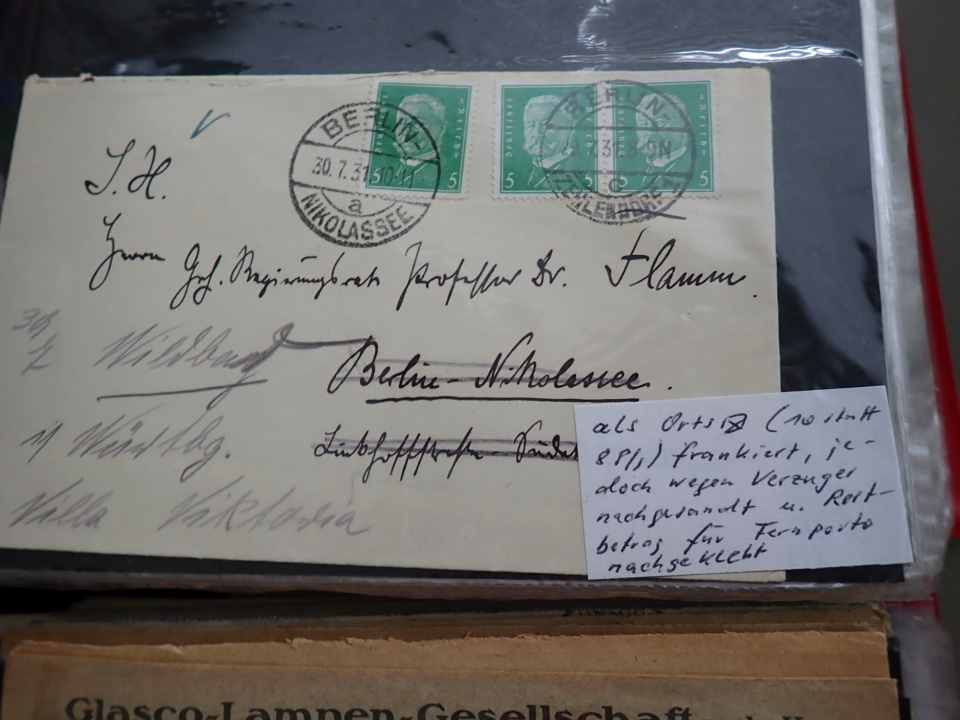 BERLIN-
30.7.31.10-11
a
NIKOLASSEE
5
DEUTSCHES
5
5
BERLIN-
ZEHLENDORF
c
S. H.
Herrn Geh. Regierungsrat Professor Dr. Flamm.
Wildbad
Berlin-Nikolassee.
i/ Württbg.
Villa Viktoria
als Orts (10 statt
8 Pf.) frankiert, je-
doch wegen Verzuges
nachgesandt u. Rest-
betrag für Fernporto
nachgeklebt
Glasco-Lampen-Gesellschaft